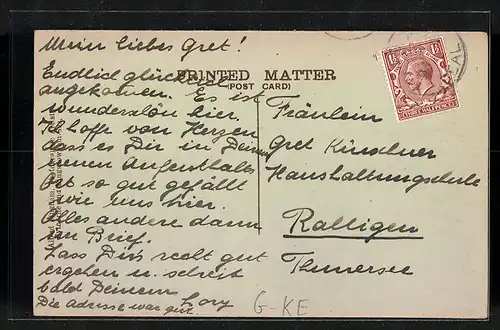 Mein liebes Gret!
Endlich glücklich
angekommen. Es ist
wunderschön hier.
Ich hoffe von Herzen
dass es Dir in Deinem
neuen Aufenthalts
Ort so gut gefällt
wie uns hier.
Alles andere dann
im Brief.
Lass Dirs recht gut
ergehen u. schreib
bald Deinem
Lory
Die Adresse war gut.
PRINTED MATTER
(POST CARD)
Fräulein
Gret Kirschner
Haushaltungsschule
Ralligen
Thunersee
G-KE